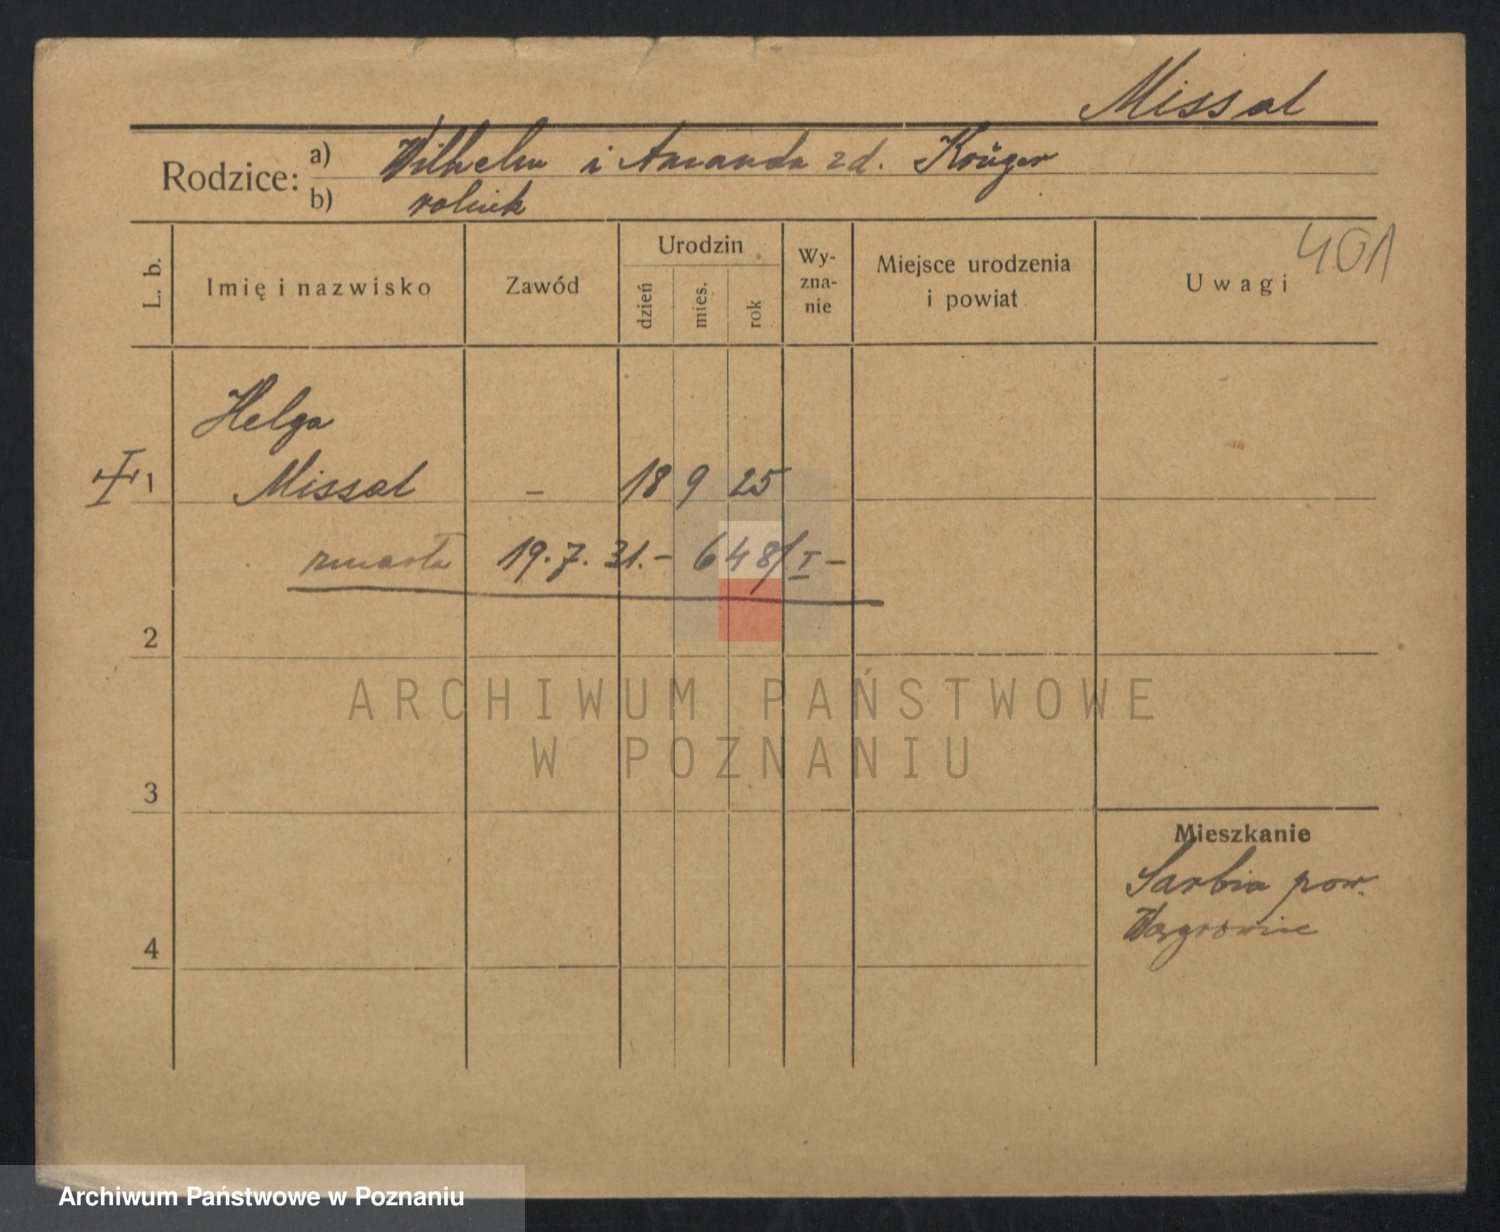 Missal
Rodzice: a) Wilhelm i Amanda zd. Krüger
b) rolnik
401
L. b.
Imię i nazwisko
Zawód
Urodzin
dzień
mies.
rok
Wy-
zna-
nie
Miejsce urodzenia
i powiat
Uwagi
Helga
1 Missal – 18 9 25
zmarła 19.7.31.– 648/I –
2
3
4
Mieszkanie
Sarbia pow.
Wągrowiec
ARCHIWUM PAŃSTWOWE
W POZNANIU
Archiwum Państwowe w Poznaniu